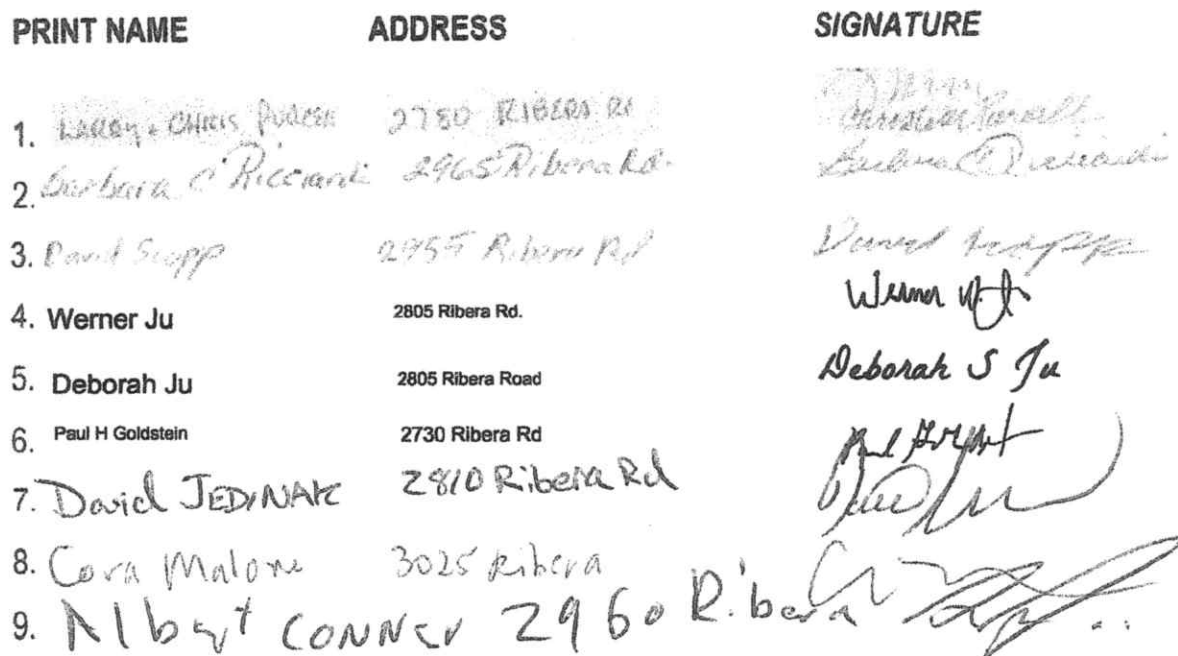 PRINT NAME ADDRESS SIGNATURE
1. LARRY + CHRIS PURCELL 2780 RIBERA Rd
2. Barbara C Ricciardi 2965 Ribera Rd. Barbara C Ricciardi
3. David Scopp 2955 Ribera Rd David Scopp
4. Werner Ju 2805 Ribera Rd. Werner
5. Deborah Ju 2805 Ribera Road Deborah S Ju
6. Paul H Goldstein 2730 Ribera Rd
7. David JEDINAK 2810 Ribera Rd
8. Cora Malone 3025 Ribera
9. Albert CONNER 2960 Ribera